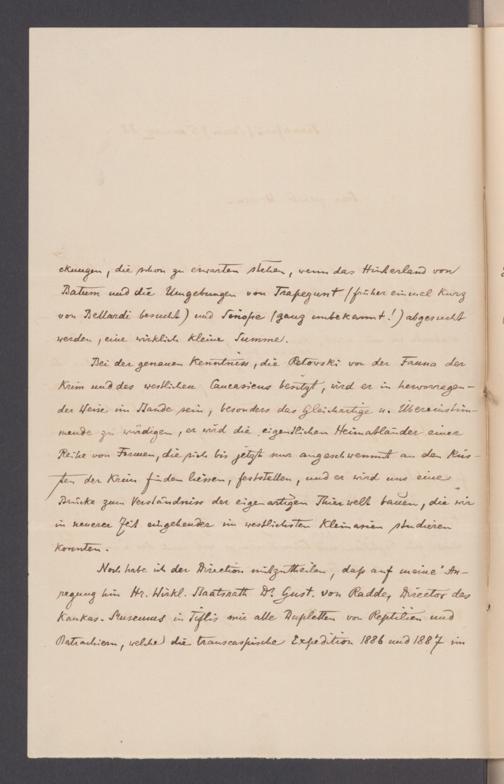 ckungen, die schon zu erwarten stehen, wenn das Hinterland von
Batum und die Umgebungen von Trapezunt (früher einmal kurz
von Bellardi besucht) und Sinope (ganz unbekannt!) abgesucht
werden, eine wirklich kleine Summe.
Bei der genauen Kenntniss, die Retowski von der Fauna der
Krim und des westlichen Caucasicus besitzt, wird er in hervorragen-
der Weise im Stande sein, besonders das Gleichartige u. Übereinstim-
mende zu würdigen, er wird die eigentlichen Heimatländer einer
Reihe von Formen, die sich bis jetzt nur angeschwemmt an den Küs-
ten der Krim finden liessen, feststellen, und er wird uns eine
Brücke zum Verständniss der eigenartigen Thierwelt bauen, die wir
in neuerer Zeit eingehender im westlichsten Kleinasien studieren
konnten.
Noch habe ich der Direction mitzutheilen, daß auf meine An-
regung hin Hr. Wirkl. Staatsrath Dr. Gust. von Radde, Director des
Kaukas. Museums in Tiflis mir alle Dupletten von Reptilien und
Batrachiern, welche die transcaspische Expedition 1886 und 1887 im